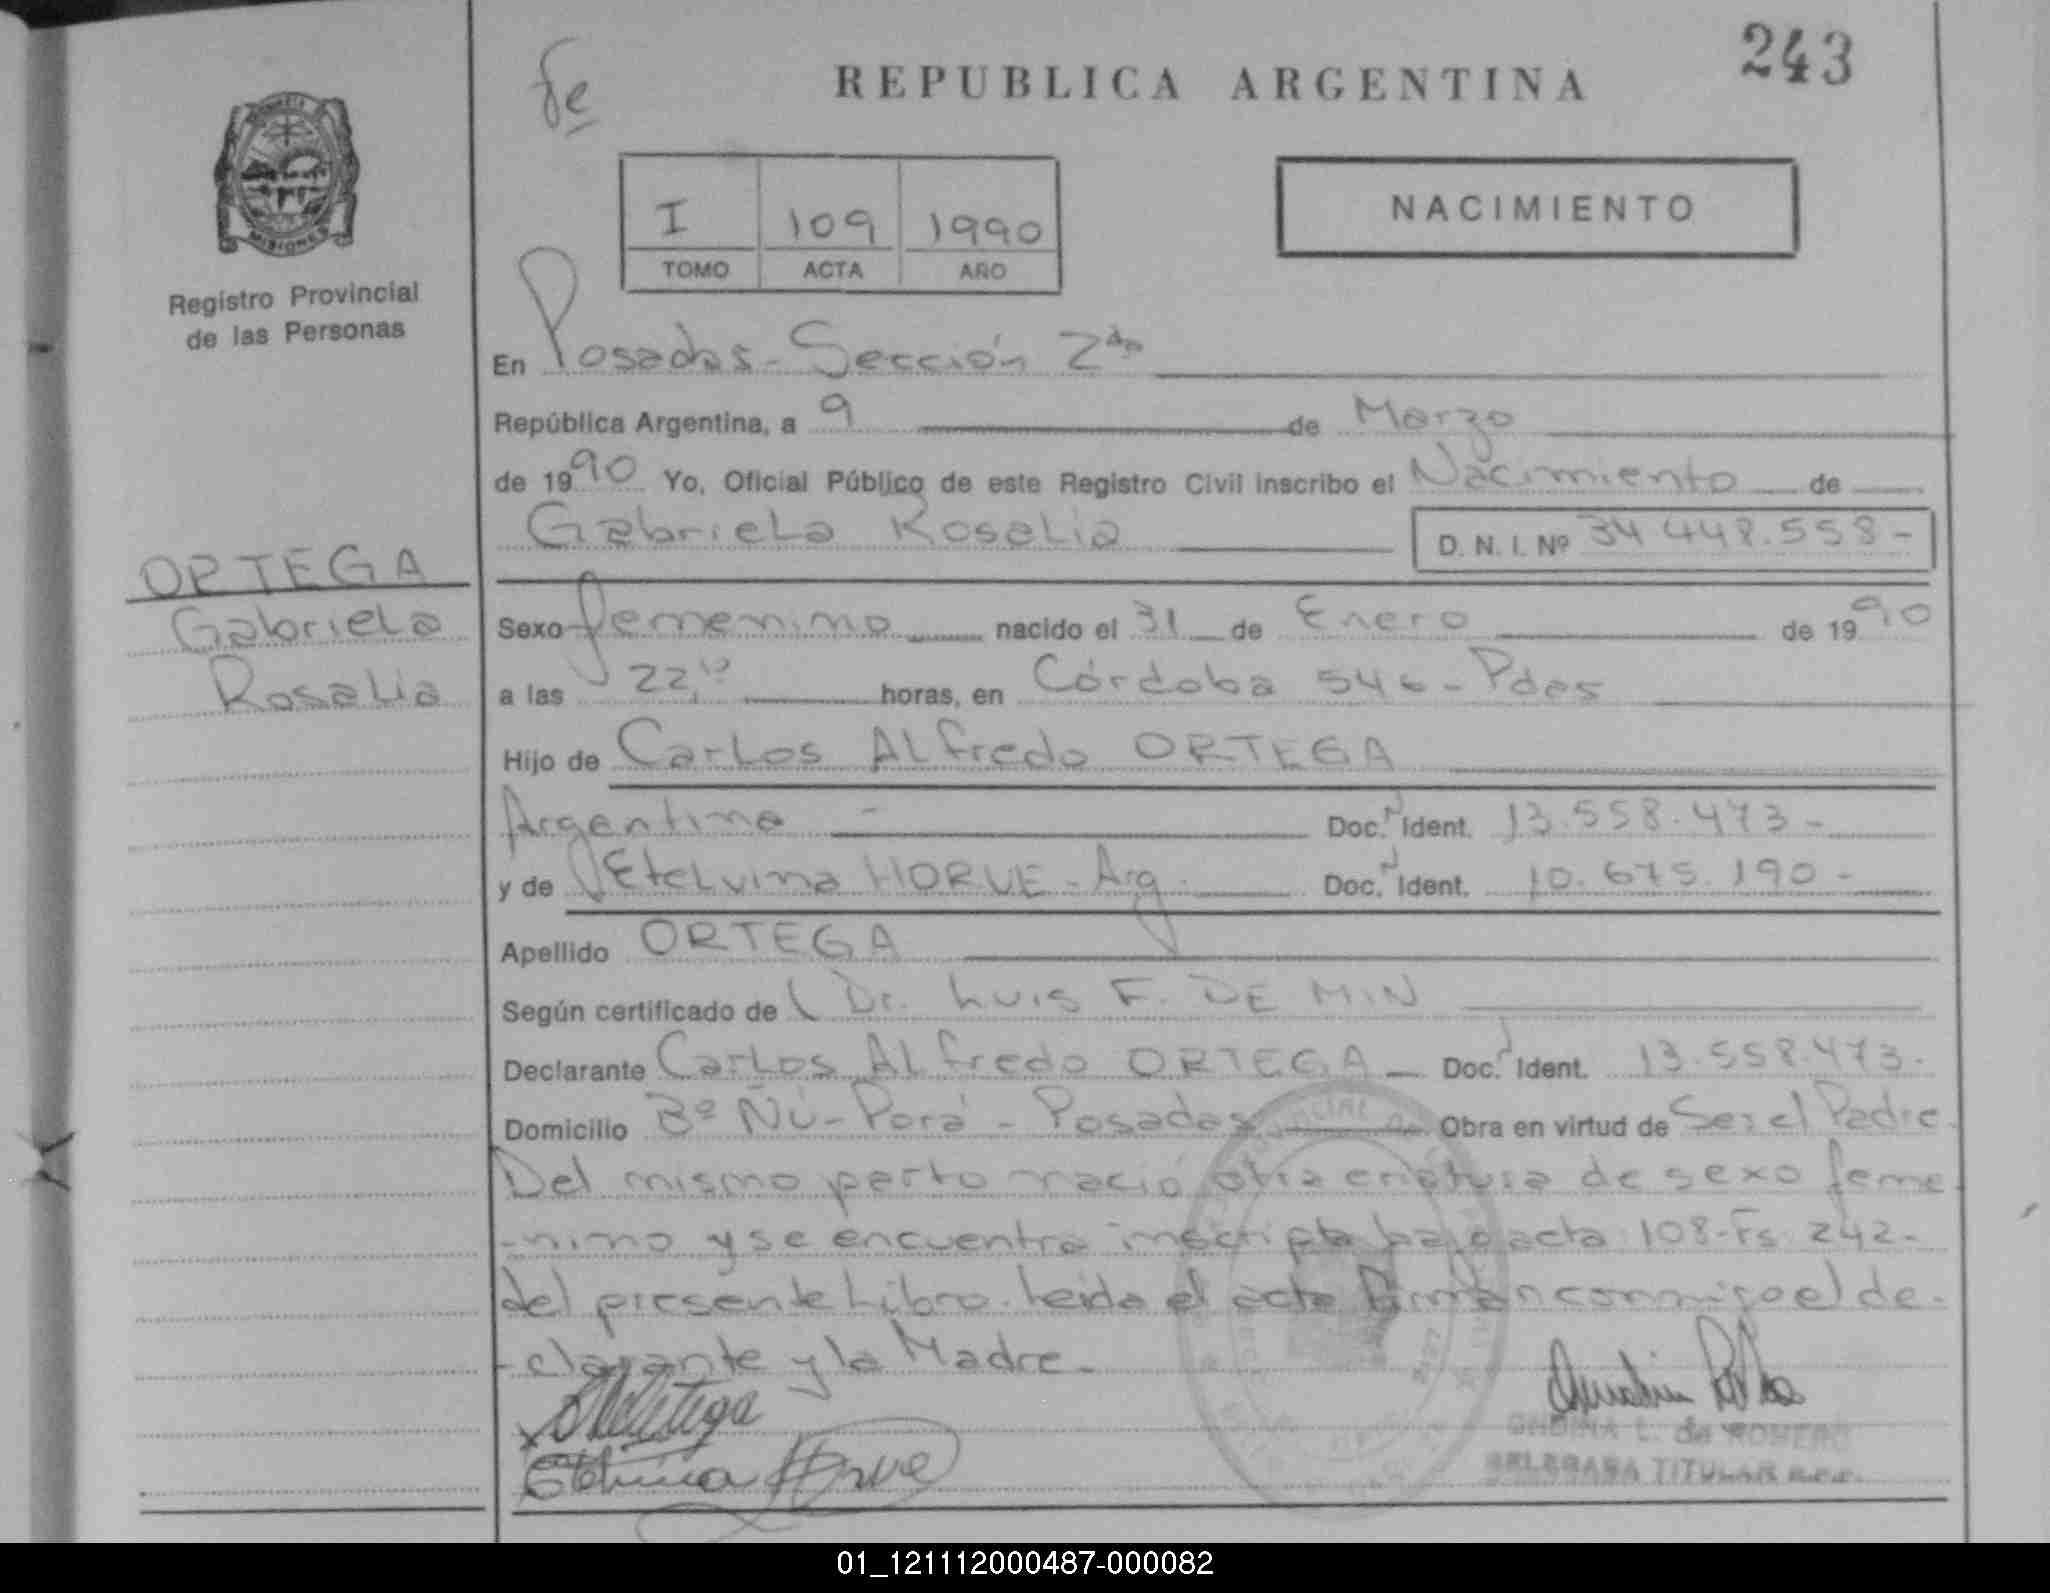 243
fe
REPUBLICA ARGENTINA
MISIONES
Registro Provincial
de las Personas
I 109 1990
TOMO ACTA AÑO
NACIMIENTO
En Posadas - Sección 2da
República Argentina, a 9 de Marzo
de 1990 Yo, Oficial Público de este Registro Civil inscribo el Nacimiento de
Gabriela Rosalia D. N. I. Nº 34 448.558-
ORTEGA
Gabriela
Rosalia
Sexo femenino nacido el 31 de Enero de 1990
a las 22,10 horas, en Córdoba 546 - Pdas
Hijo de Carlos Alfredo ORTEGA
Argentino - Doc. Ident. 13.558.473-
y de Etelvina HORVE - Arg. Doc. Ident. 10.675.190-
Apellido ORTEGA
Según certificado de Dr. Luis F. DE MIN
Declarante Carlos Alfredo ORTEGA - Doc. Ident. 13.558.473-
Domicilio Bº Ñú-Porá - Posadas Obra en virtud de Ser el Padre.
Del mismo parto nació otra criatura de sexo feme
-nino y se encuentra inscripta bajo acta 108-Fs. 242-
del presente Libro. Leida el acta firman conmigo el de-
-clarante y la Madre-
Etelvina Horve
L. de ROMERO
DELEGADA TITULAR
01_121112000487-000082